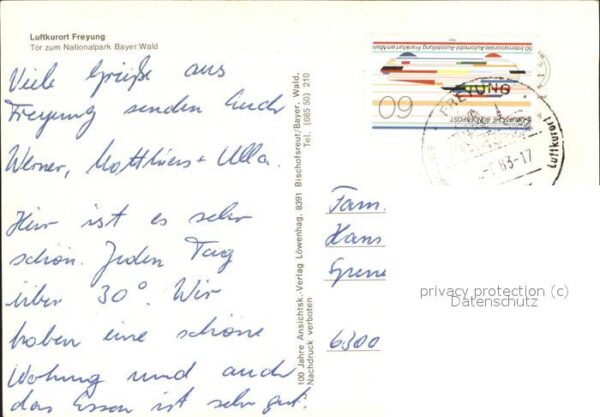 Luftkurort Freyung
Tor zum Nationalpark Bayer.Wald
Viele Grüße aus
Freyung senden Euch
Werner, Matthias + Ulla.
Hier ist es sehr
schön. Jeden Tag
über 30°. Wir
haben eine schöne
Wohnung und auch
das Essen ist sehr gut.
100 Jahre Ansichtsk.-Verlag Löwenhag, 8391 Bischofsreut/Bayer. Wald.
Nachdruck verboten
Tel. (085 50) 210
50. Internationale Automobil-Ausstellung Frankfurt am Main
60
DEUTSCHE BUNDESPOST
FREYUNG
83-17
Luftkurort
Fam.
Hans
6300
privacy protection (c)
Datenschutz